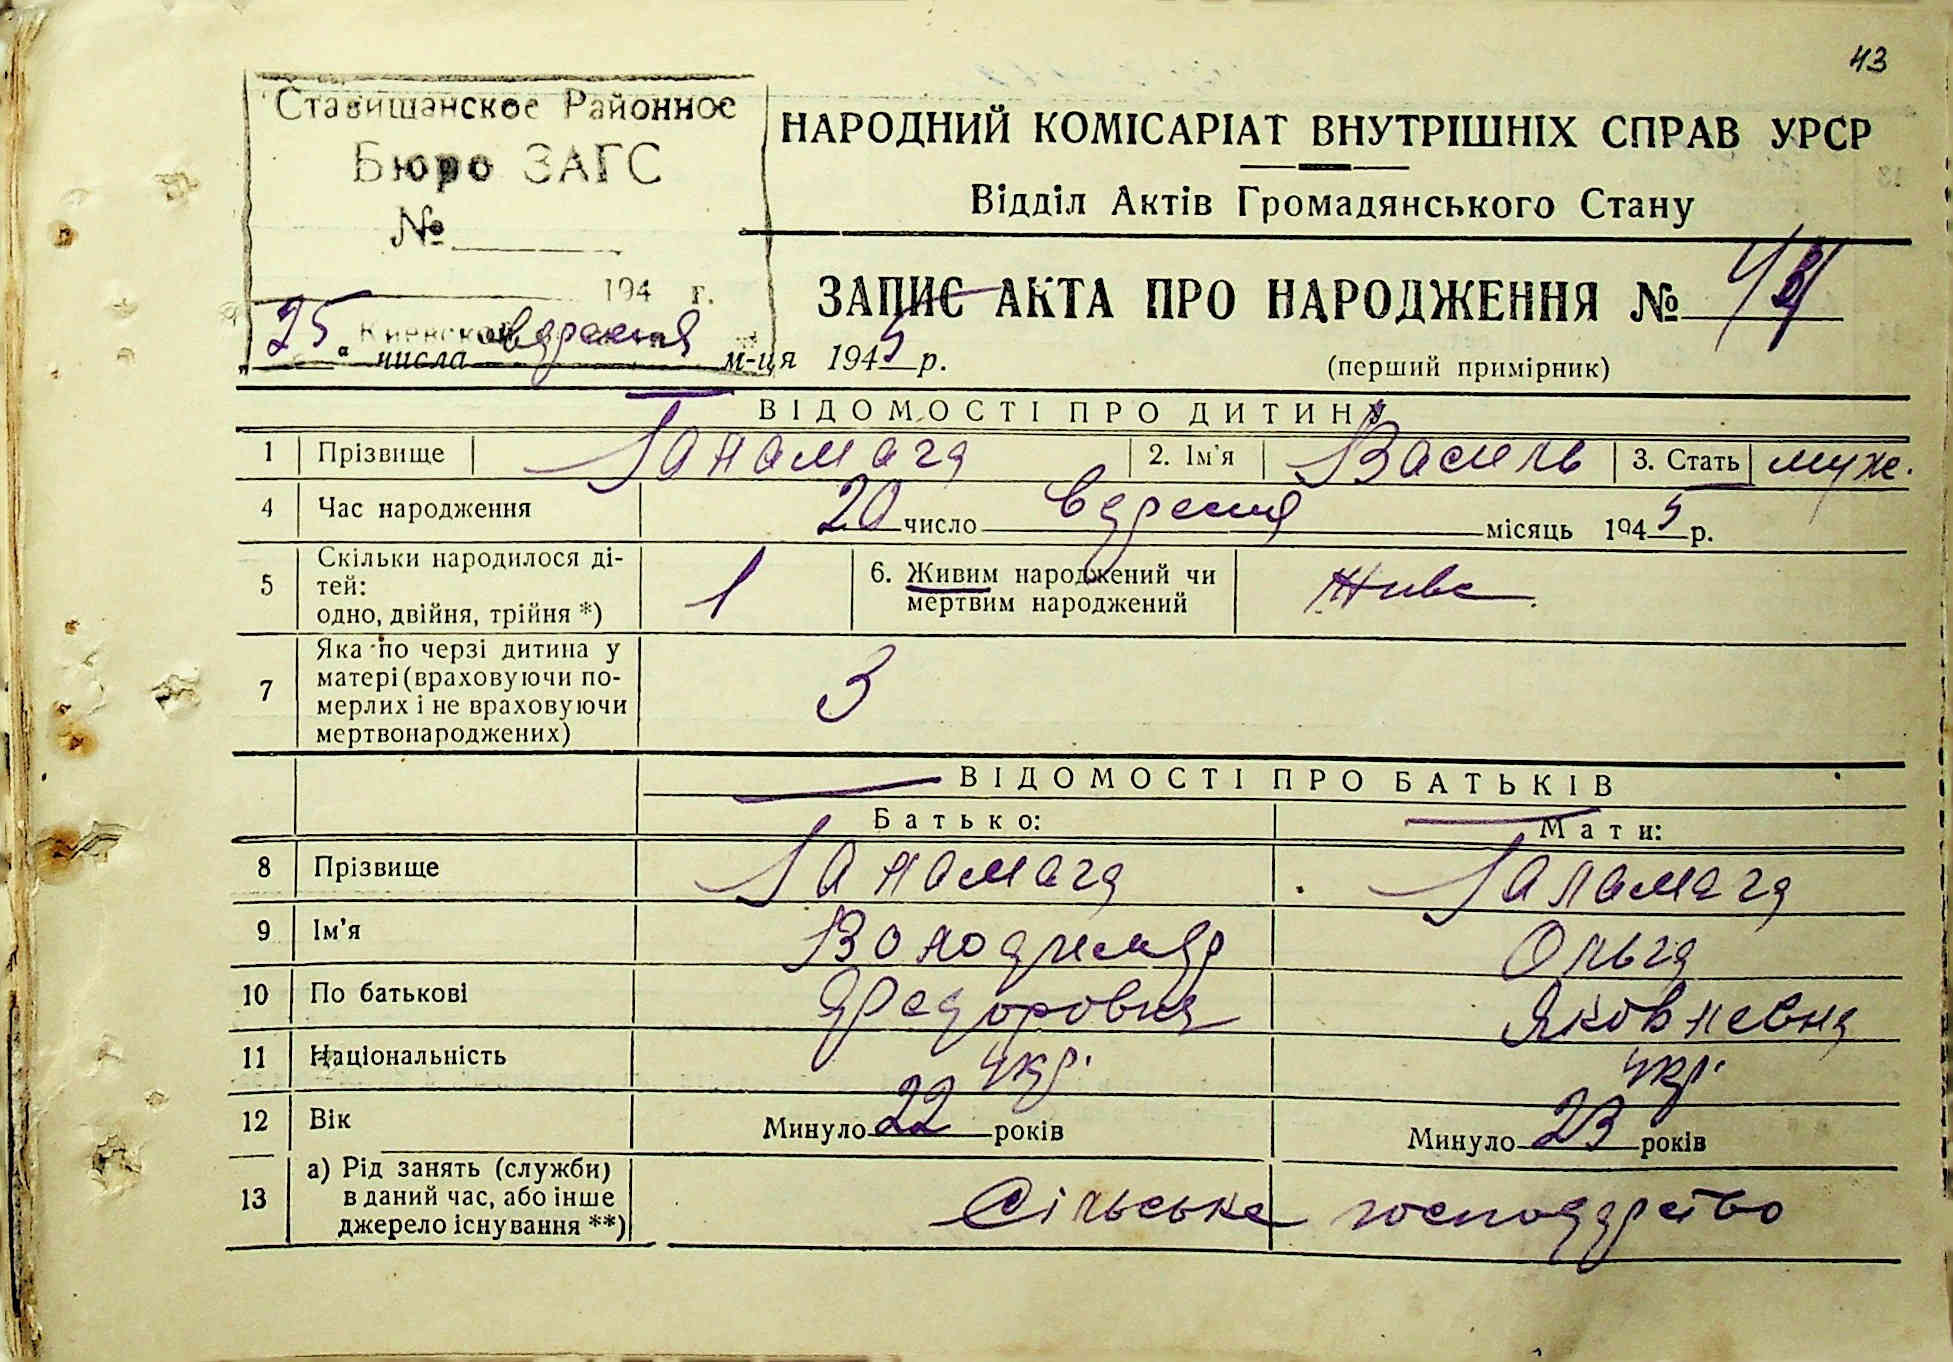 43
Ставищанское Районное
Бюро ЗАГС
№
194 г.
НАРОДНИЙ КОМІСАРІАТ ВНУТРІШНІХ СПРАВ УРСР
Відділ Актів Громадянського Стану
ЗАПИС АКТА ПРО НАРОДЖЕННЯ №
25 числа вересня м-ця 1945 р.
(перший примірник)
ВІДОМОСТІ ПРО ДИТИНУ
1 Прізвище Галамага 2. Ім'я Василь 3. Стать муж.
4 Час народження 20 число вересня місяць 1945 р.
5 Скільки народилося ді-
тей:
одно, двійня, трійня *) 1
6. Живим народжений чи
мертвим народжений Живе
7 Яка по черзі дитина у
матері (враховуючи по-
мерлих і не враховуючи
мертвонароджених) 3
ВІДОМОСТІ ПРО БАТЬКІВ
Батько: Мати:
8 Прізвище Галамага Галамага
9 Ім'я Володимир Ольга
10 По батькові Федорович Яковлевна
11 Національність укр. укр.
12 Вік Минуло 22 років Минуло 23 років
13 а) Рід занять (служби)
в даний час, або інше
джерело існування **) Сільське господарство